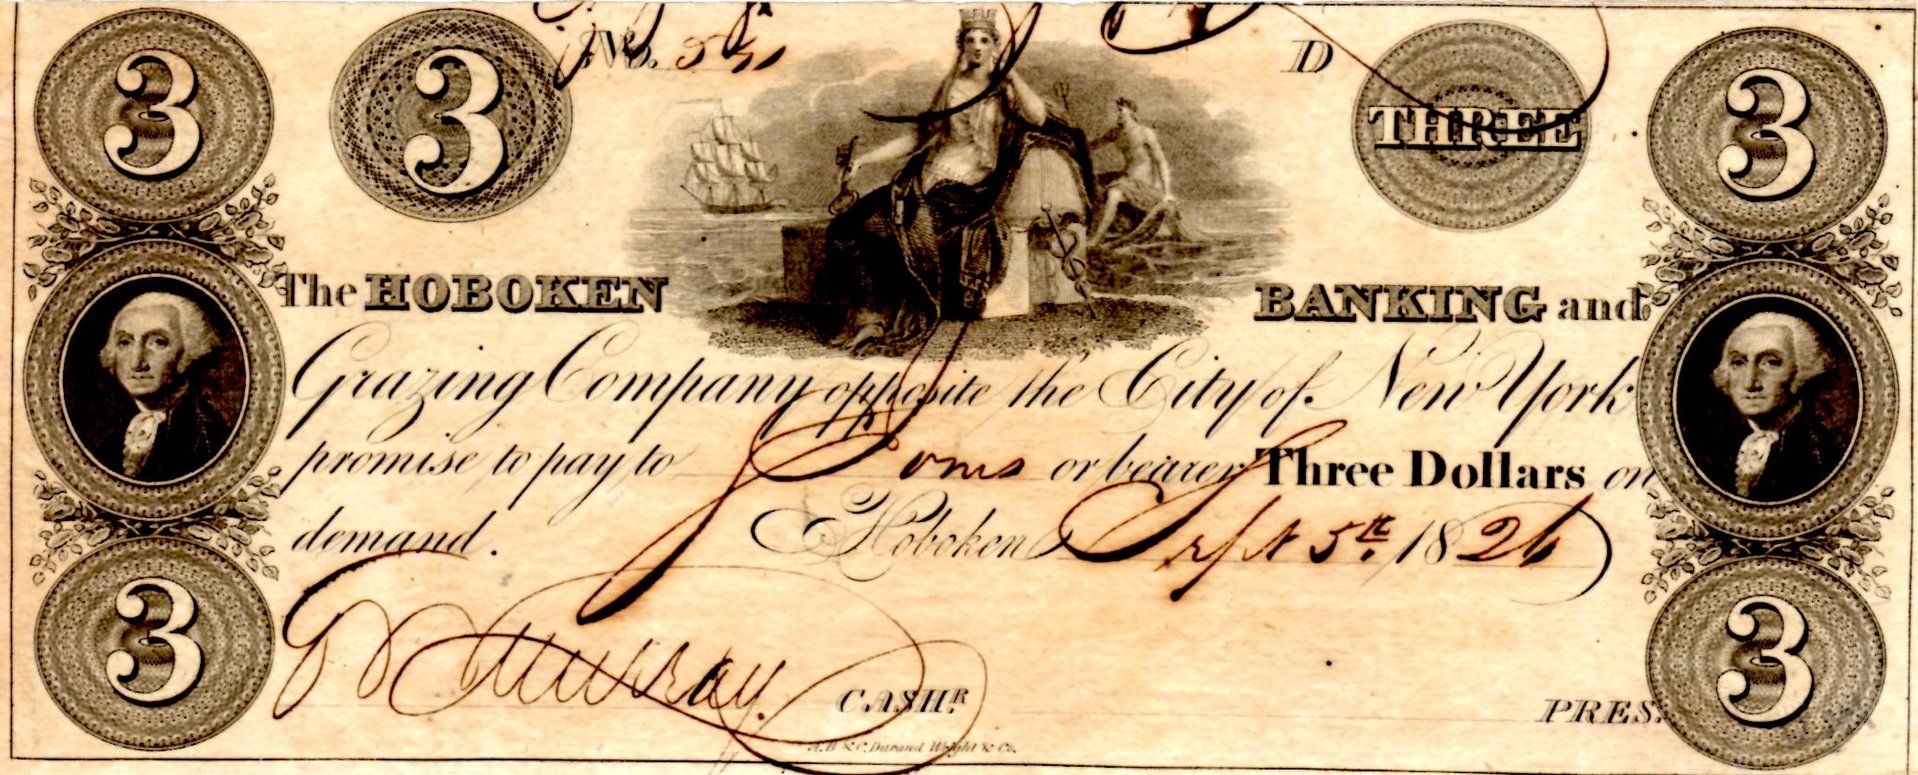 3 3 No. D THREE 3
The HOBOKEN BANKING and
Grazing Company opposite the City of New York
promise to pay to or bearer Three Dollars on
demand. Hoboken Sept 5th. 1826
3 Murray. CASHR. PRES. 3
A.B & C. Durand Wright & Co.